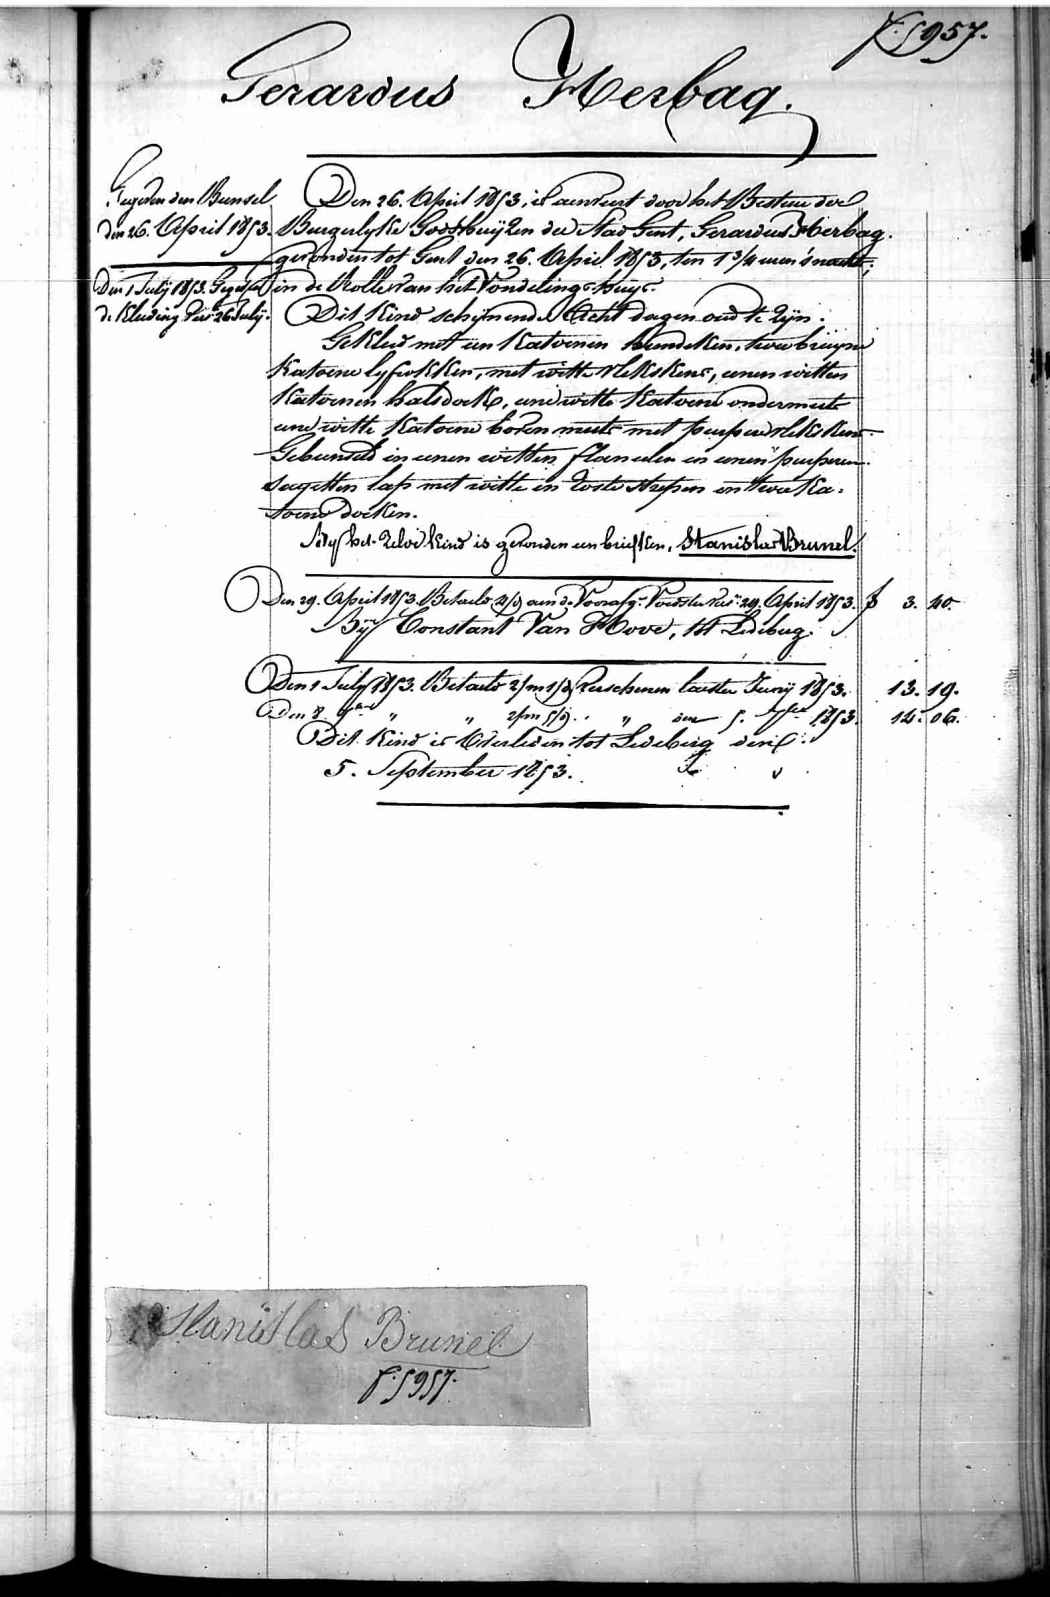 f. 5957.
Gerardus Herbaq.
Gegeven den Bunsel
den 26. April 1853.
Den 1 Julij 1853. Gegeven
de Kleeding Per 26 Julij.
Den 26. April 1853, is aenveert door het Bestuer der
Burgerlyke Godshuijzen der Stad Gent, Gerardus Herbaq.
gevonden tot Gent den 26. April 1853, ten 1 3/4 uren 's nachts;
in de Rolle van het Vondelings-huys.
Dit Kind schijnende Acht dagen oud te Zyn.
Gekleed met een Katoenen hemdeken, twee bruyne
Katoene lyfrokken, met witte vlekskens, eenen witten
Katoenen halsdoek, eene witte Katoene ondermuts
eene witte Katoene boven muts met purpere vlekskens.
Gebunseld in eenen witten flanelen en eenen purperen
sargetten lap met witte en roste strepen en twee Ka-
toene doeken.
By het Zelve Kind is gevonden een briefken, Stanislas Brunel.
Den 29. April 1853. Betaeld aen de Voorsz. Voedster Per 29 April 1853. f 3. 40.
Bij Constant Van Hove, tot Ledeberg.
Den 1 Julij 1853. Betaeld 2/m 1/d Verschenen laesten Junij 1853. 13. 19.
Den 8. " " 2/m 5/d. " den 5. 1853. 14. 06.
Dit Kind is Overleden tot Ledeberg den
5. September 1853.
Stanislas Brunel
f. 5957.